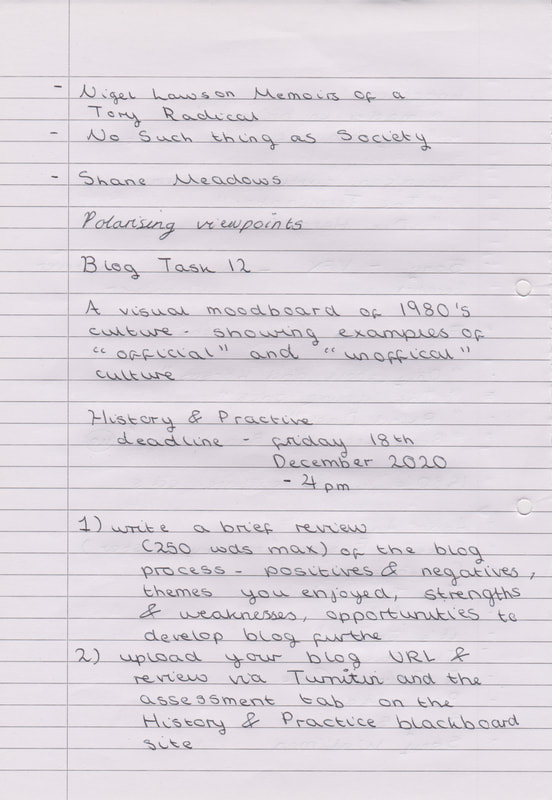 - Nigel Lawson Memoirs of a
Tory Radical
- No Such thing as Society
- Shane Meadows
Polarising viewpoints
Blog Task 12
A visual moodboard of 1980's
culture - showing examples of
"official" and "unoffical"
culture
History & Practive
deadline - friday 18th
December 2020
- 4pm
1) write a brief review
(250 wds max) of the blog
process - positives & negatives,
themes you enjoyed, strengths
& weaknesses, opportunities to
develop blog furthe
2) upload your blog URL &
review via Turnitin and the
assessment tab on the
History & Practice blackboard
site